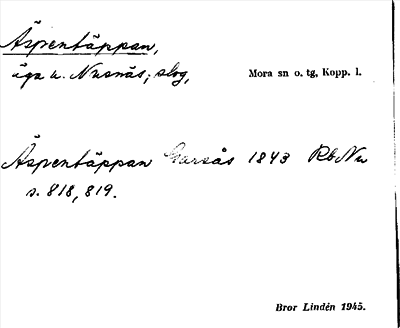 Äspentäppan,
äga u. Nusnäs; slog,
Mora sn o. tg, Kopp. l.
Äspentäppan Garsås 1843 Rb Nu
s. 818, 819.
Bror Lindén 1945.